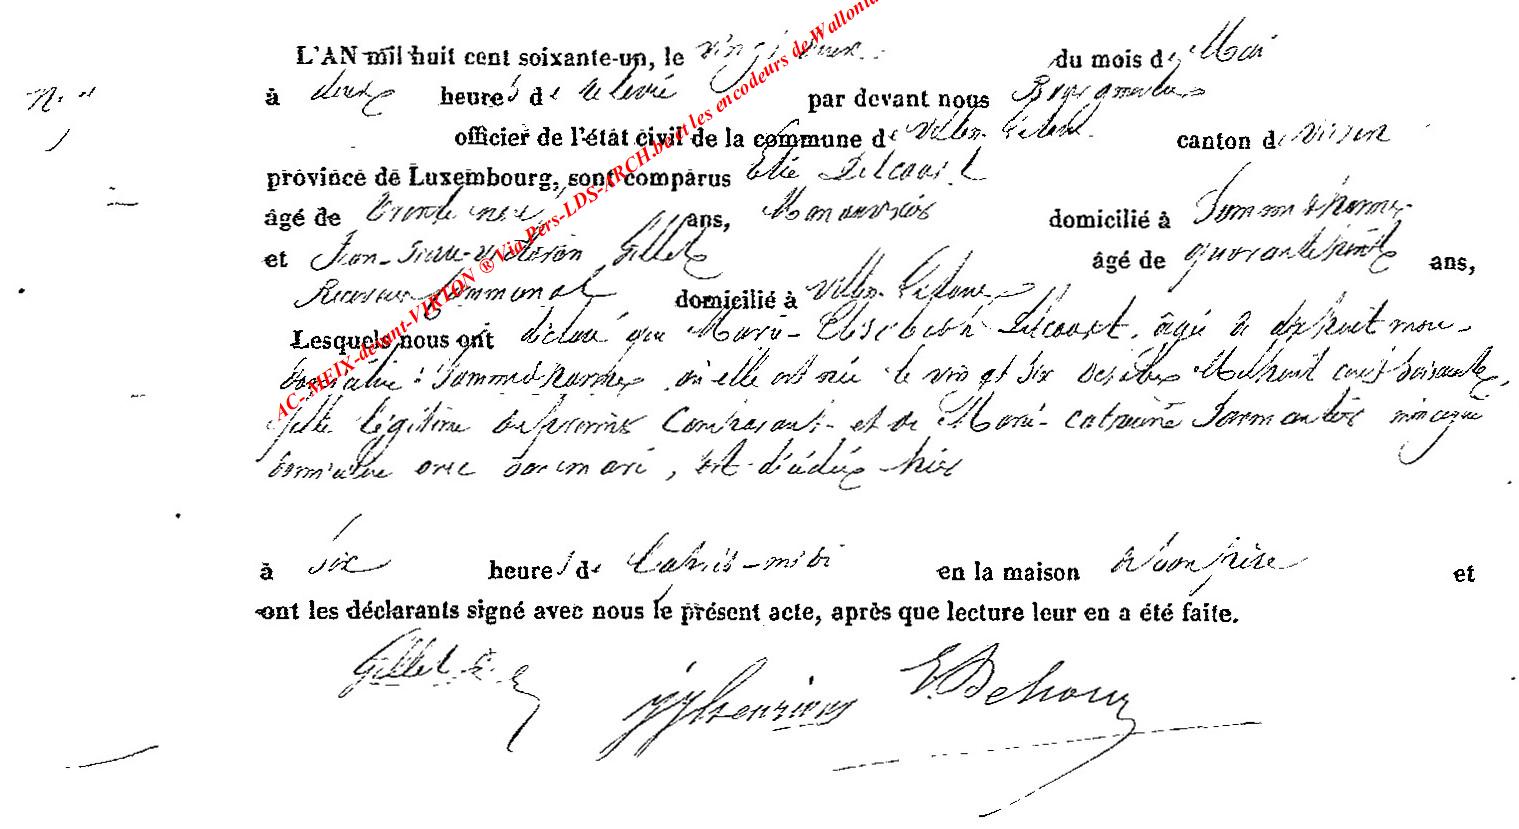 L'AN mil huit cent soixante-un, le vingt deux du mois de Mai
à deux heures de relevée par devant nous Bourgmestre
officier de l'état civil de la commune de Villers canton de Virton
province de Luxembourg, sont comparus Elie Delcourt
âgé de trente ans, Manouvrier domicilié à Sommethonne
et Jean-Pierre- Gillet âgé de quarante ans,
Receveur communal domicilié à Villers
Lesquels nous ont déclaré que Marie-Elisabeth Delcourt, âgée de dix huit mois
domiciliée à Sommethonne où elle est née le vingt six octobre Mil huit cent soixante,
fille légitime du premier Comparant et de Marie-Catherine ménagère
domiciliée avec son mari, est décédée hier
à six heures de l'après-midi en la maison de son père et
ont les déclarants signé avec nous le présent acte, après que lecture leur en a été faite.
Gillet
AC-MEIX-devant-VIRTON ® Via Pers-LDS-ARCH.be et les encodeurs de Wallonie